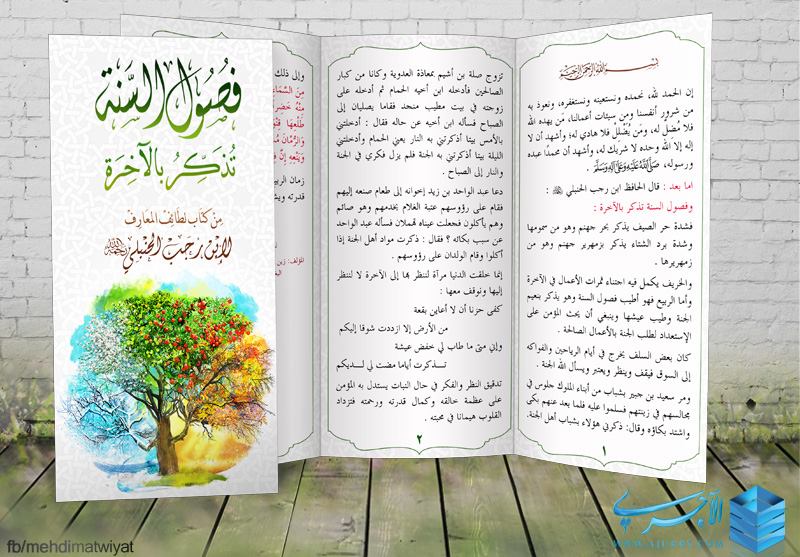 فصول السنة
تذكر بالآخرة
من كتاب لطائف المعارف
لابن رجب الحنبلي رحمه الله
بسم الله الرحمن الرحيم
إن الحمد لله، نحمده ونستعينه ونستغفره، ونعوذ به
من شرور أنفسنا ومن سيئات أعمالنا، من يهده الله
فلا مُضلّ له، ومَن يُضْلِل فلا هادي له؛ وأشهد أن لا
إله إلا الله وحده لا شريك له، وأشهد أن محمدًا عبده
ورسوله، صَلَّى اللهُ عَلَيْهِ وَعَلَى آلِهِ وَسَلَّمَ .
اما بعد : قال الحافظ ابن رجب الحنبلي :
وفصول السنة تذكر بالآخرة :
فشدة حر الصيف يذكر بحر جهنم وهو من سمومها
وشدة برد الشتاء يذكر بزمهرير جهنم وهو من
زمهريرها .
والخريف يكمل فيه اجتناء ثمرات الأعمال في الآخرة
وأما الربيع فهو أطيب فصول السنة وهو يذكر بنعيم
الجنة وطيب عيشها وينبغي أن يحث المؤمن على
الإستعداد لطلب الجنة بالأعمال الصالحة .
كان بعض السلف يخرج في أيام الرياحين والفواكه
إلى السوق فيقف وينظر ويعتبر ويسأل الله الجنة .
ومر سعيد بن جبير بشباب من أبناء الملوك جلوس في
مجالسهم في زينتهم فسلموا عليه فلما بعد عنهم بكى
واشتد بكاؤه وقال: ذكرني هؤلاء بشباب أهل الجنة.
١
تزوج صلة بن أشيم بمعاذة العدوية وكانا من كبار
الصالحين فأدخله ابن أخيه الحمام ثم أدخله على
زوجته في بيت مطيب منجد فقاما يصليان إلى
الصباح فسأله ابن أخيه عن حاله فقال : أدخلتني
بالأمس بيتا أذكرتني به النار يعني الحمام وأدخلتني
الليلة بيتا أذكرتني به الجنة فلم يزل فكري في الجنة
والنار إلى الصباح .
دعا عبد الواحد بن زيد إخوانه إلى طعام صنعه إليهم
فقام على رؤوسهم عتبة الغلام يخدمهم وهو صائم
وهم يأكلون فجعلت عيناه تهملان فسأله عبد الواحد
عن سبب بكائه ؟ فقال : ذكرت مواد أهل الجنة إذا
أكلوا وقام الولدان على رؤوسهم .
إنما خلقت الدنيا مرآة لننظر بها إلى الآخرة لا لننظر
إليها ونوقف معها :
كفى حزنا أن لا أعاين بقعة
من الأرض إلا ازددت شوقا إليكم
وإني متى ما طاب لي خفض عيشة
تـــذكرت أياما مضت لي لــــديكم
تدقيق النظر والفكر في حال النبات يستدل به المؤمن
على عظمة خالقه وكمال قدرته ورحمته فتزداد
القلوب هيمانا في محبته .
٢
وإلى ذلك
مِنَ السَّمَاءِ
مِنْهُ خَضِرًا
طَلْعِهَا قِنْوَانٌ
وَالرُّمَّانَ
وَيَنْعِهِ إِنَّ فِي
زمان الربيع
قدرته
الآجري
WWW.AJURRY.COM
fb/mehdimatwiyat